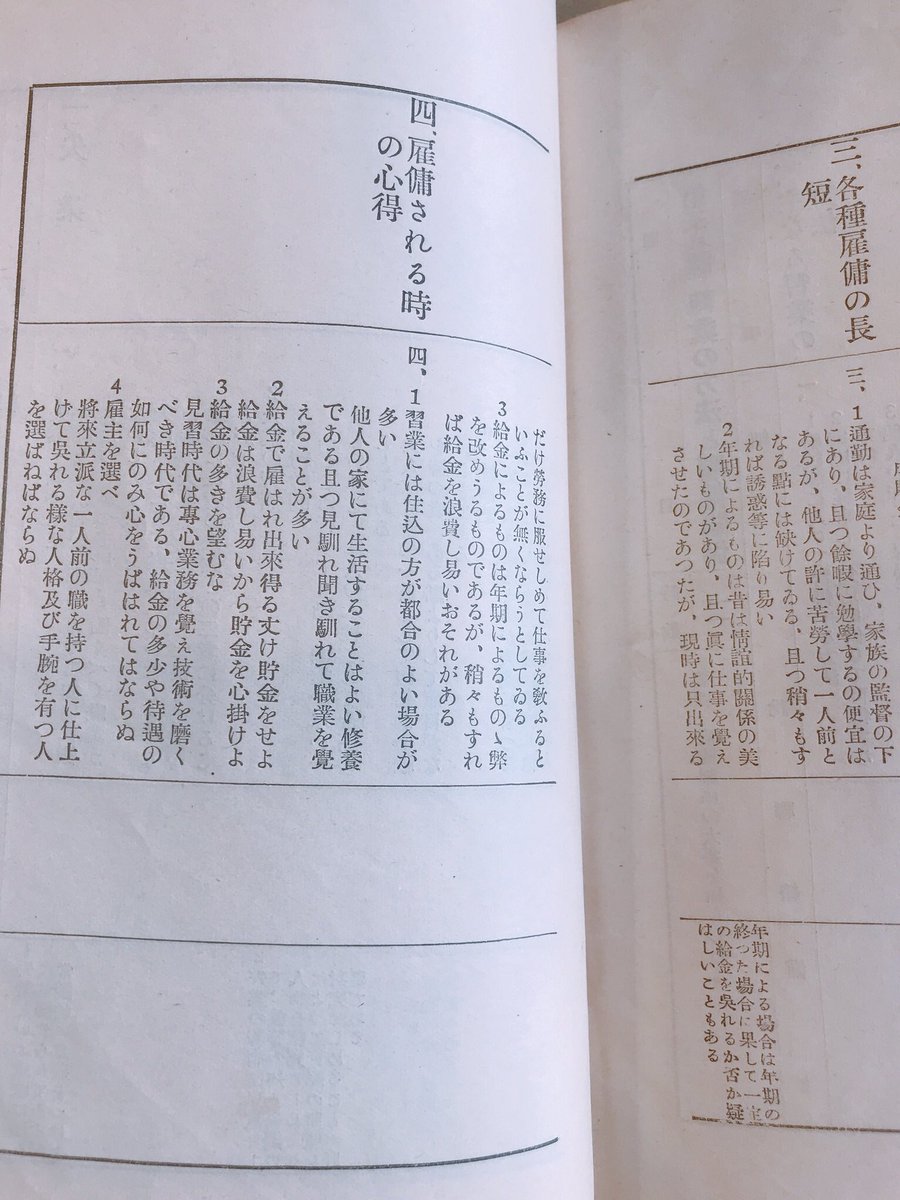 三、各種雇傭の長
短
三、1通勤は家庭より通ひ、家族の監督の下
にあり、且つ餘暇に勉學するの便宜は
あるが、他人の許に苦勞して一人前と
なる點には缺けてゐる、且つ稍々もす
れば誘惑等に陷り易い
2年期によるものは昔は情誼的關係の美
しいものがあり、且つ眞に仕事を覺え
させたのであつたが、現時は只出來る
年期による場合は年期の
終つた場合に果して一定
の給金を吳れるか否か疑
はしいこともある
だけ勞務に服せしめて仕事を敎ふると
いふことが無くならうとしてゐる
3給金によるものは年期によるものゝ弊
を改めうるものであるが、稍々もすれ
ば給金を浪費し易いおそれがある
四、雇傭される時
の心得
四、1習業には住込の方が都合のよい場合が
多い
他人の家にて生活することはよい修養
である且つ見馴れ聞き馴れて職業を覺
えることが多い
2給金で雇はれ出來得る丈け貯金をせよ
給金は浪費し易いから貯金を心掛けよ
3給金の多きを望むな
見習時代は專心業務を覺え技術を磨く
べき時代である、給金の多少や待遇の
如何にのみ心をうばはれてはならぬ
4雇主を選べ
將來立派な一人前の職を持つ人に仕上
げて吳れる樣な人格及び手腕を有つ人
を選ばねばならぬ